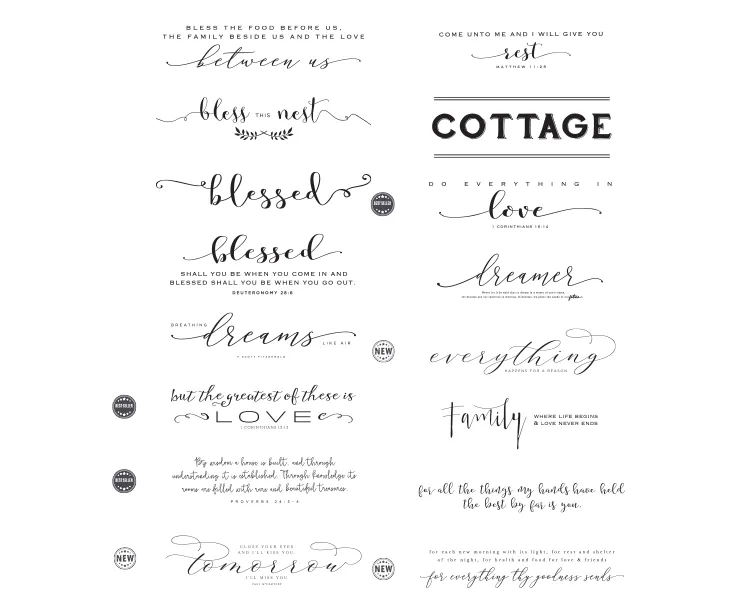 BLESS THE FOOD BEFORE US,
THE FAMILY BESIDE US AND THE LOVE
between us
bless THIS nest
blessed
BEST SELLER
blessed
SHALL YOU BE WHEN YOU COME IN AND
BLESSED SHALL YOU BE WHEN YOU GO OUT.
DEUTERONOMY 28:6
BREATHING
dreams
LIKE AIR
F. SCOTT FITZGERALD
NEW
but the greatest of these is
LOVE
1 CORINTHIANS 13:13
BEST SELLER
By wisdom a house is built, and through
understanding it is established. Through knowledge its
rooms are filled with rare and beautiful treasures.
PROVERBS 24:3-4
BEST SELLER
CLOSE YOUR EYES
AND I'LL KISS YOU,
tomorrow
I'LL MISS YOU
NEW
COME UNTO ME AND I WILL GIVE YOU
rest
MATTHEW 11:28
COTTAGE
DO EVERYTHING IN
love
1 CORINTHIANS 16:14
dreamer
everything
HAPPENS FOR A REASON
Family
WHERE LIFE BEGINS
& LOVE NEVER ENDS
for all the things my hands have held
the best by far is you.
for each new morning with its light, for rest and shelter
of the night, for health and food for love & friends
for everything thy goodness sends
NEW